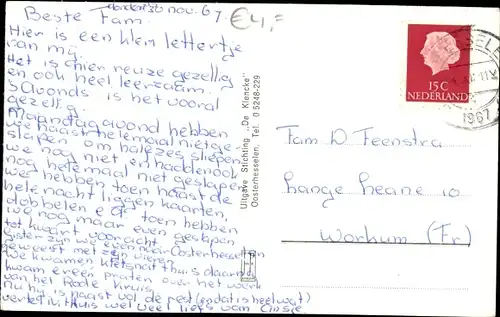 donder 30 nov. 67.
€4,=
Beste Fam.
Hier is een klein lettertje
van mij.
Het is hier reuze gezellig
en ook heel leerzaam.
S'avonds is het vooral
gezellig.
Maandagavond hebben
we haast helemaal niet ge-
slapen om half zes sliepen
we nog niet en hadden ook
nog helemaal niet geslapen
we hebben toen haast de
hele nacht liggen kaarten,
dobbelen e of toen hebben
we nog maar even geslapen
tot kwart voor acht.
Gister zijn we even naar Oosterhesselen
geweest met zijn vieren
We kwamen kletsnat thuis daarna
kwam er een praten over het werk
van het Rode Kruis.
Nu hij is haast vol de rest (en dat is heel wat)
vertel ik thuis wel veel liefs van Cinsie
Uitgave Stichting „De Klencke"
Oosterhesselen, Tel. 05248-229
15C
NEDERLAND
1967
Fam D Feenstra
Lange Leane 10
Workum (Fr)